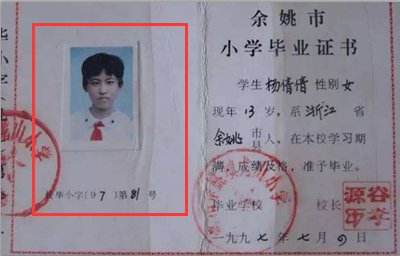 余姚市
小学毕业证书
学生杨倩倩性别女
现年13岁,系浙江省
余姚市县人,在本校学习期
满,成绩及格,准予毕业。
毕业学校 校长
一九九七年七月 日
毕小字(97)第81号